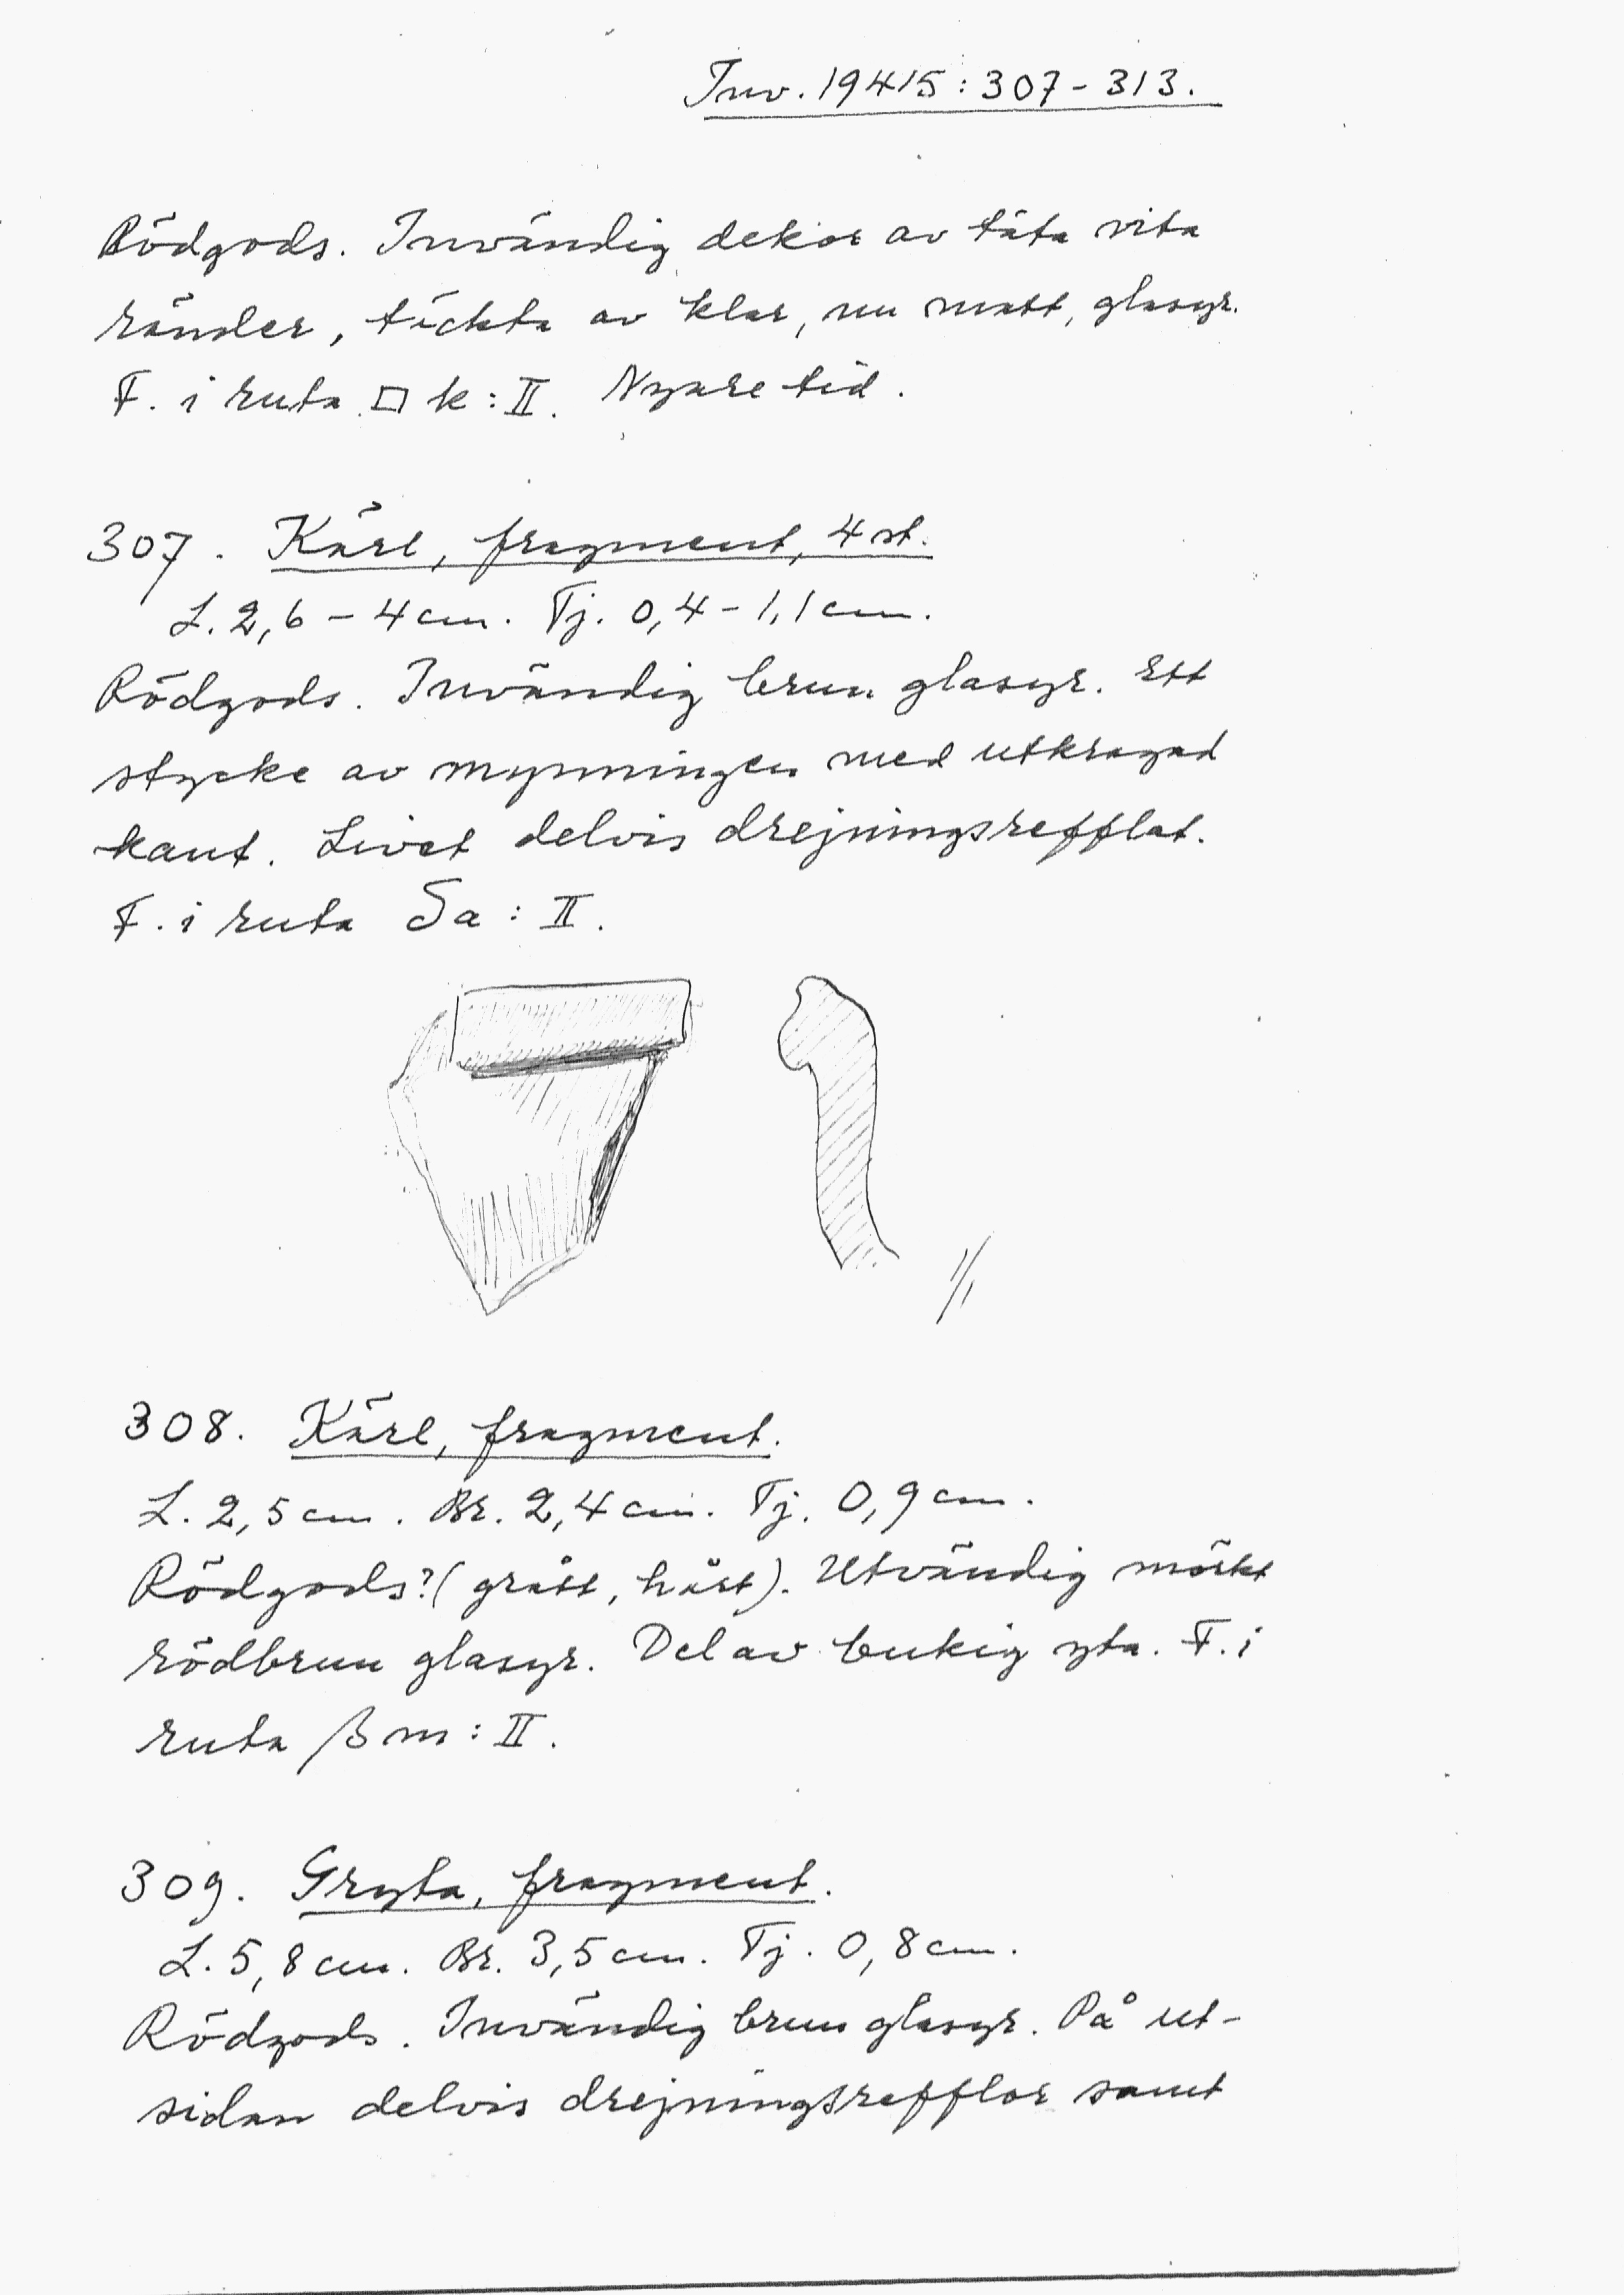 Inv. 19415:307-313.
Rödgods. Invändig dekor av täta vita
ränder, täckta av klar, nu matt, glasyr.
F. i ruta □ k:II. Nyare tid.
307. Kärl, fragment, 4 st.
L. 2,6 - 4 cm. Tj. 0,4 - 1,1 cm.
Rödgods. Invändig brun glasyr. Ett
stycke av mynningen med utkragad
kant. Livet delvis drejningsrefflat.
F. i ruta δa:II.
1/1
308. Kärl, fragment.
L. 2,5 cm. Br. 2,4 cm. Tj. 0,9 cm.
Rödgods? (grått, hårt). Utvändig mörkt
rödbrun glasyr. Del av bukig yta. F. i
ruta βm:II.
309. Gryta, fragment.
L. 5,8 cm. Br. 3,5 cm. Tj. 0,8 cm.
Rödgods. Invändig brun glasyr. På ut-
sidan delvis drejningsrefflor samt